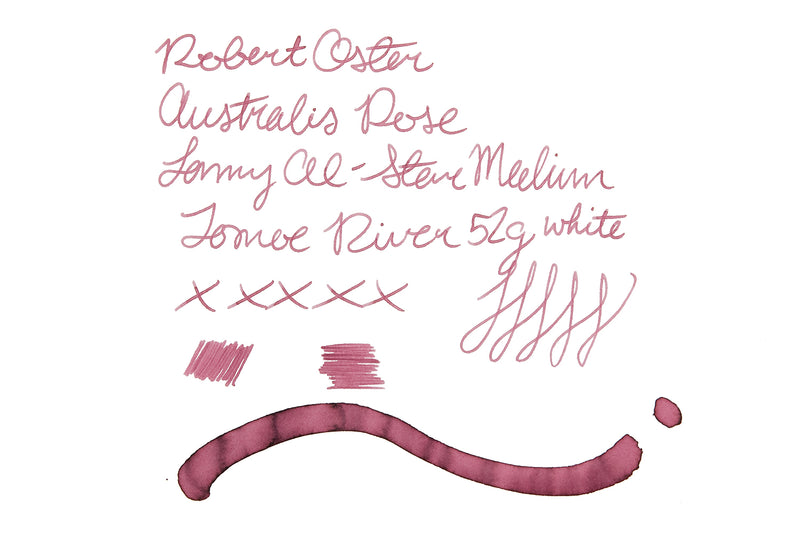 Robert Oster
Australis Rose
Lamy Al-Star Medium
Tomoe River 52g white
x x x x x